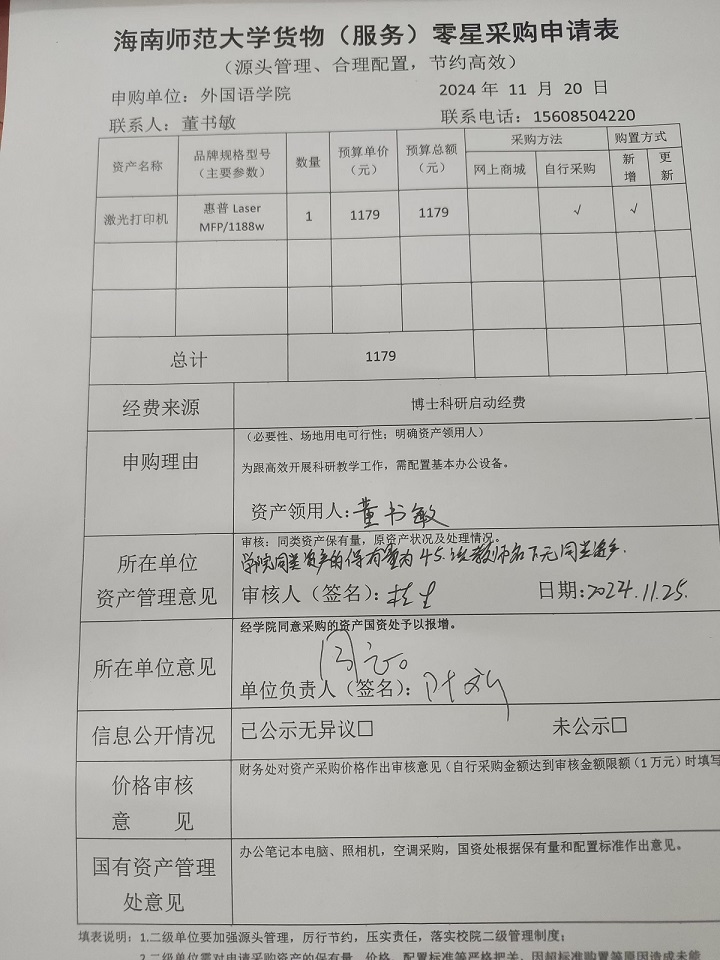 海南师范大学货物（服务）零星采购申请表
（源头管理、合理配置，节约高效）
申购单位：外国语学院 2024 年 11 月 20 日
联系人：董书敏 联系电话：15608504220
资产名称 品牌规格型号（主要参数） 数量 预算单价（元） 预算总额（元） 采购方法 购置方式
网上商城 自行采购 新增 更新
激光打印机 惠普 Laser MFP/1188w 1 1179 1179 √ √
总计 1179
经费来源 博士科研启动经费
申购理由 （必要性、场地用电可行性；明确资产领用人）
为跟高效开展科研教学工作，需配置基本办公设备。
资产领用人：董书敏
所在单位资产管理意见 审核：同类资产保有量，原资产状况及处理情况。
学院同类资产的保有量为45.该教师名下无同类资产.
审核人（签名）： 日期：2024.11.25.
所在单位意见 经学院同意采购的资产国资处予以报增。
同意。
单位负责人（签名）：
信息公开情况 已公示无异议□ 未公示□
价格审核意 见 财务处对资产采购价格作出审核意见（自行采购金额达到审核金额限额（1 万元）时填写
国有资产管理处意见 办公笔记本电脑、照相机，空调采购，国资处根据保有量和配置标准作出意见。
填表说明：1.二级单位要加强源头管理，厉行节约，压实责任，落实校院二级管理制度；
2.二级单位需对申请采购资产的保有量、价格、配置标准等严格把关，因超标准购置等原因造成未能